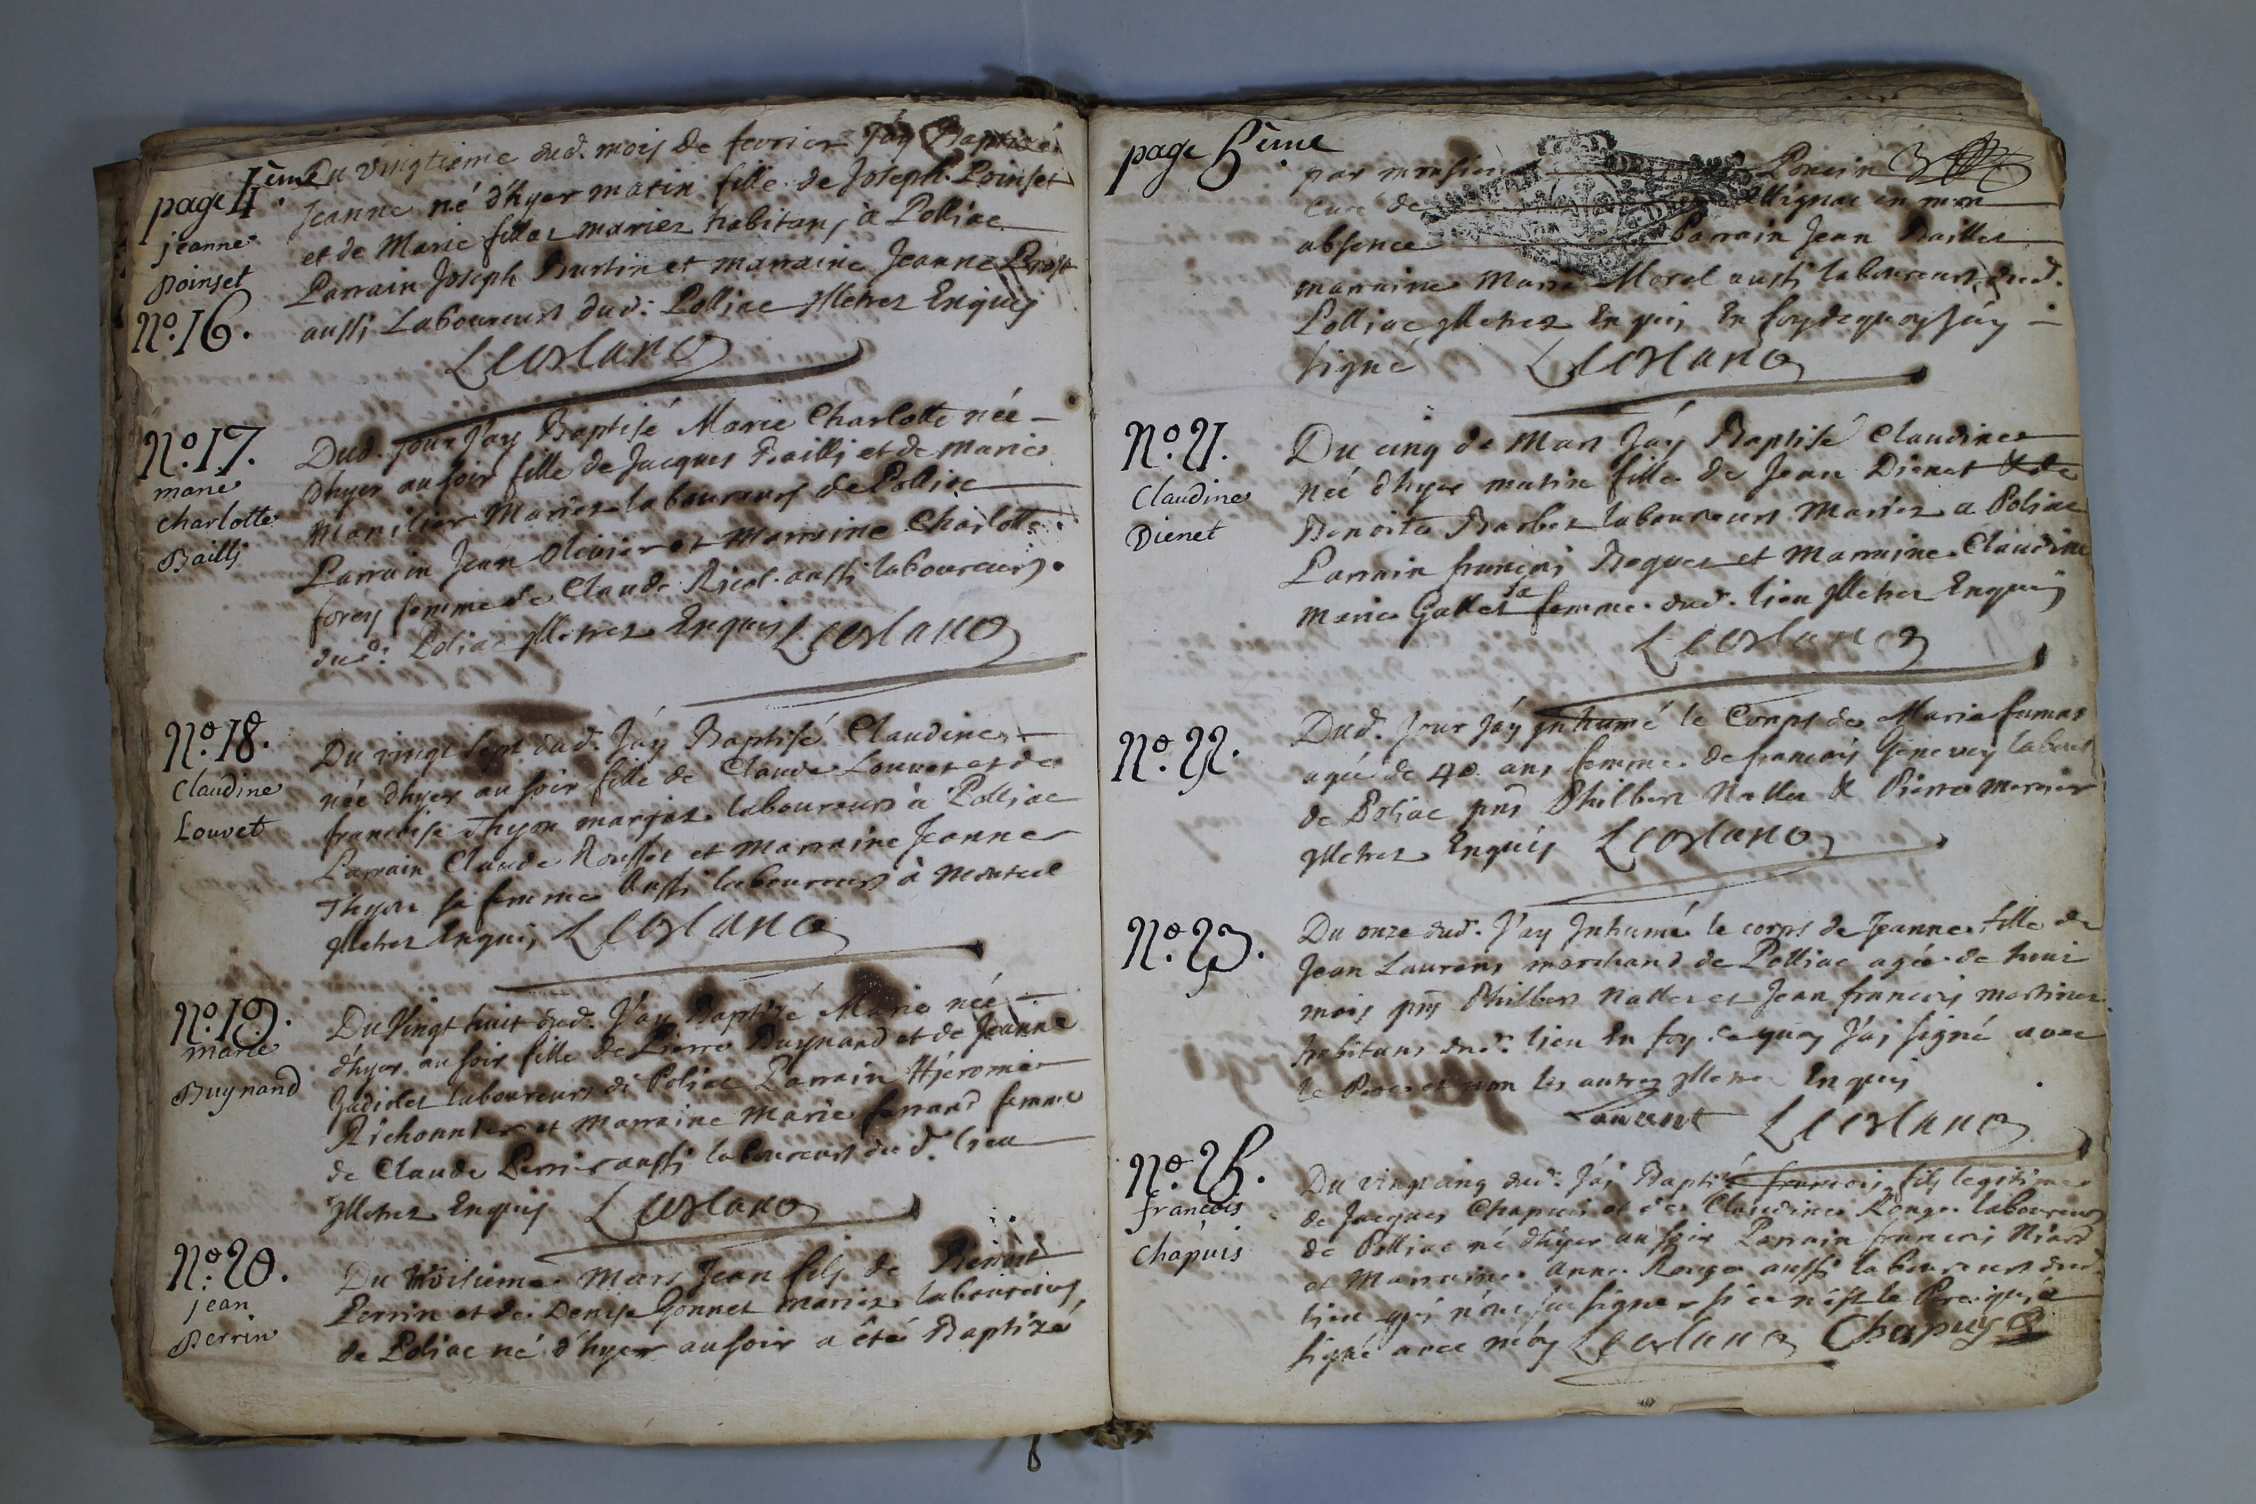 page 4ème
Du vingtieme dud. mois de fevrier J'ay Baptizé
Jeanne né d'hyer matin fille de Joseph Poinset
et de Marie fillat mariez habitans à Polliac
Parrain Joseph Burtin et marraine Jeanne Prost
aussi Laboureurs dud. Polliac Illetrez Enquis
jeanne
poinset
N.º 16.
N.º 17.
marie
charlotte
Bailli
Dud. jour J'ay Baptisé Marie Charlotte née
d'hyer au soir fille de Jacques Bailli et de marie
Mariez laboureurs de Polliac
Parrain Jean Olivier et Marraine Charlotte
forey femme de Claude Ricol aussi laboureurs
dud. Poliac Illetrez Enquis
N.º 18.
Claudine
Louvet
Du vingt sept dud. J'ay Baptisé Claudine
née d'hyer au soir fille de Claude Louvet et de
francoise Thyon mariez laboureurs à Polliac
Parrain Claude Rousset et Marraine Jeanne
Thyon sa femme Aussi laboureurs à
Illetrez Enquis
N.º 19.
marie
Buynand
Du Vingt huit dud. J'ay Baptizé Marie née
d'hyer au soir fille de Pierre Buynand et de Jeanne
laboureurs de Poliac Parrain Hjerome
et Marraine Marie ferrand femme
de Claude Perrin aussi laboureurs du d. lieu
Illetrez Enquis
N.º 20.
jean
perrin
Du troisieme Mars Jean fils de Benoit
Perrin et de Denise Gonnet mariez laboureurs
de Poliac né d'hyer au soir a êté Baptizé
page 5ème
par monsieur Poncin
Curé de Attignac en mon
absence Parrain Jean Baillet
marraine Marie Morel aussi laboureurs dud.
Polliac Illetrez Enquis En foy de quoy J'ay
signé
N.º 21.
Claudine
Dienet
Du cinq de Mars J'áy Baptisé Claudine
née d'hyer matin fille de Jean Dienet & de
Benoite Barbet laboureurs Mariez a Poliac
Parrain françois Roguet et Marraine Claudine
Marie Gallet sa femme dud. lieu Illetrez Enquis
N.º 22.
Dud. Jour J'ay Inhumé le Corps de Marie
agée de 40 ans femme de francois Genevey
de Poliac Philbert Nallet & Pierre mercier
Illetrez Enquis
N.º 23.
Du onze dud. J'ay Inhumé le corps de Jeanne fille de
Jean Laurent marchand de Polliac agée de huit
mois Philbert Nallet et Jean francois
habitans dud. lieu En foy de quoy J'ai signé avec
le Pere et non les autres Illetrez Enquis
Laurent
N.º 25.
francois
chapuis
Du vingt cinq dud. J'ai Baptizé francois fils legitime
de Jacques Chapuis et de Claudine Rouge laboureurs
de Polliac né d'hyer au soir Parrain francois
et Marraine Anne Rouge aussi laboureurs dud.
lieu qui n'ont sçu signer si ce n'est le Pere qui a
signé avec moy Chapuys